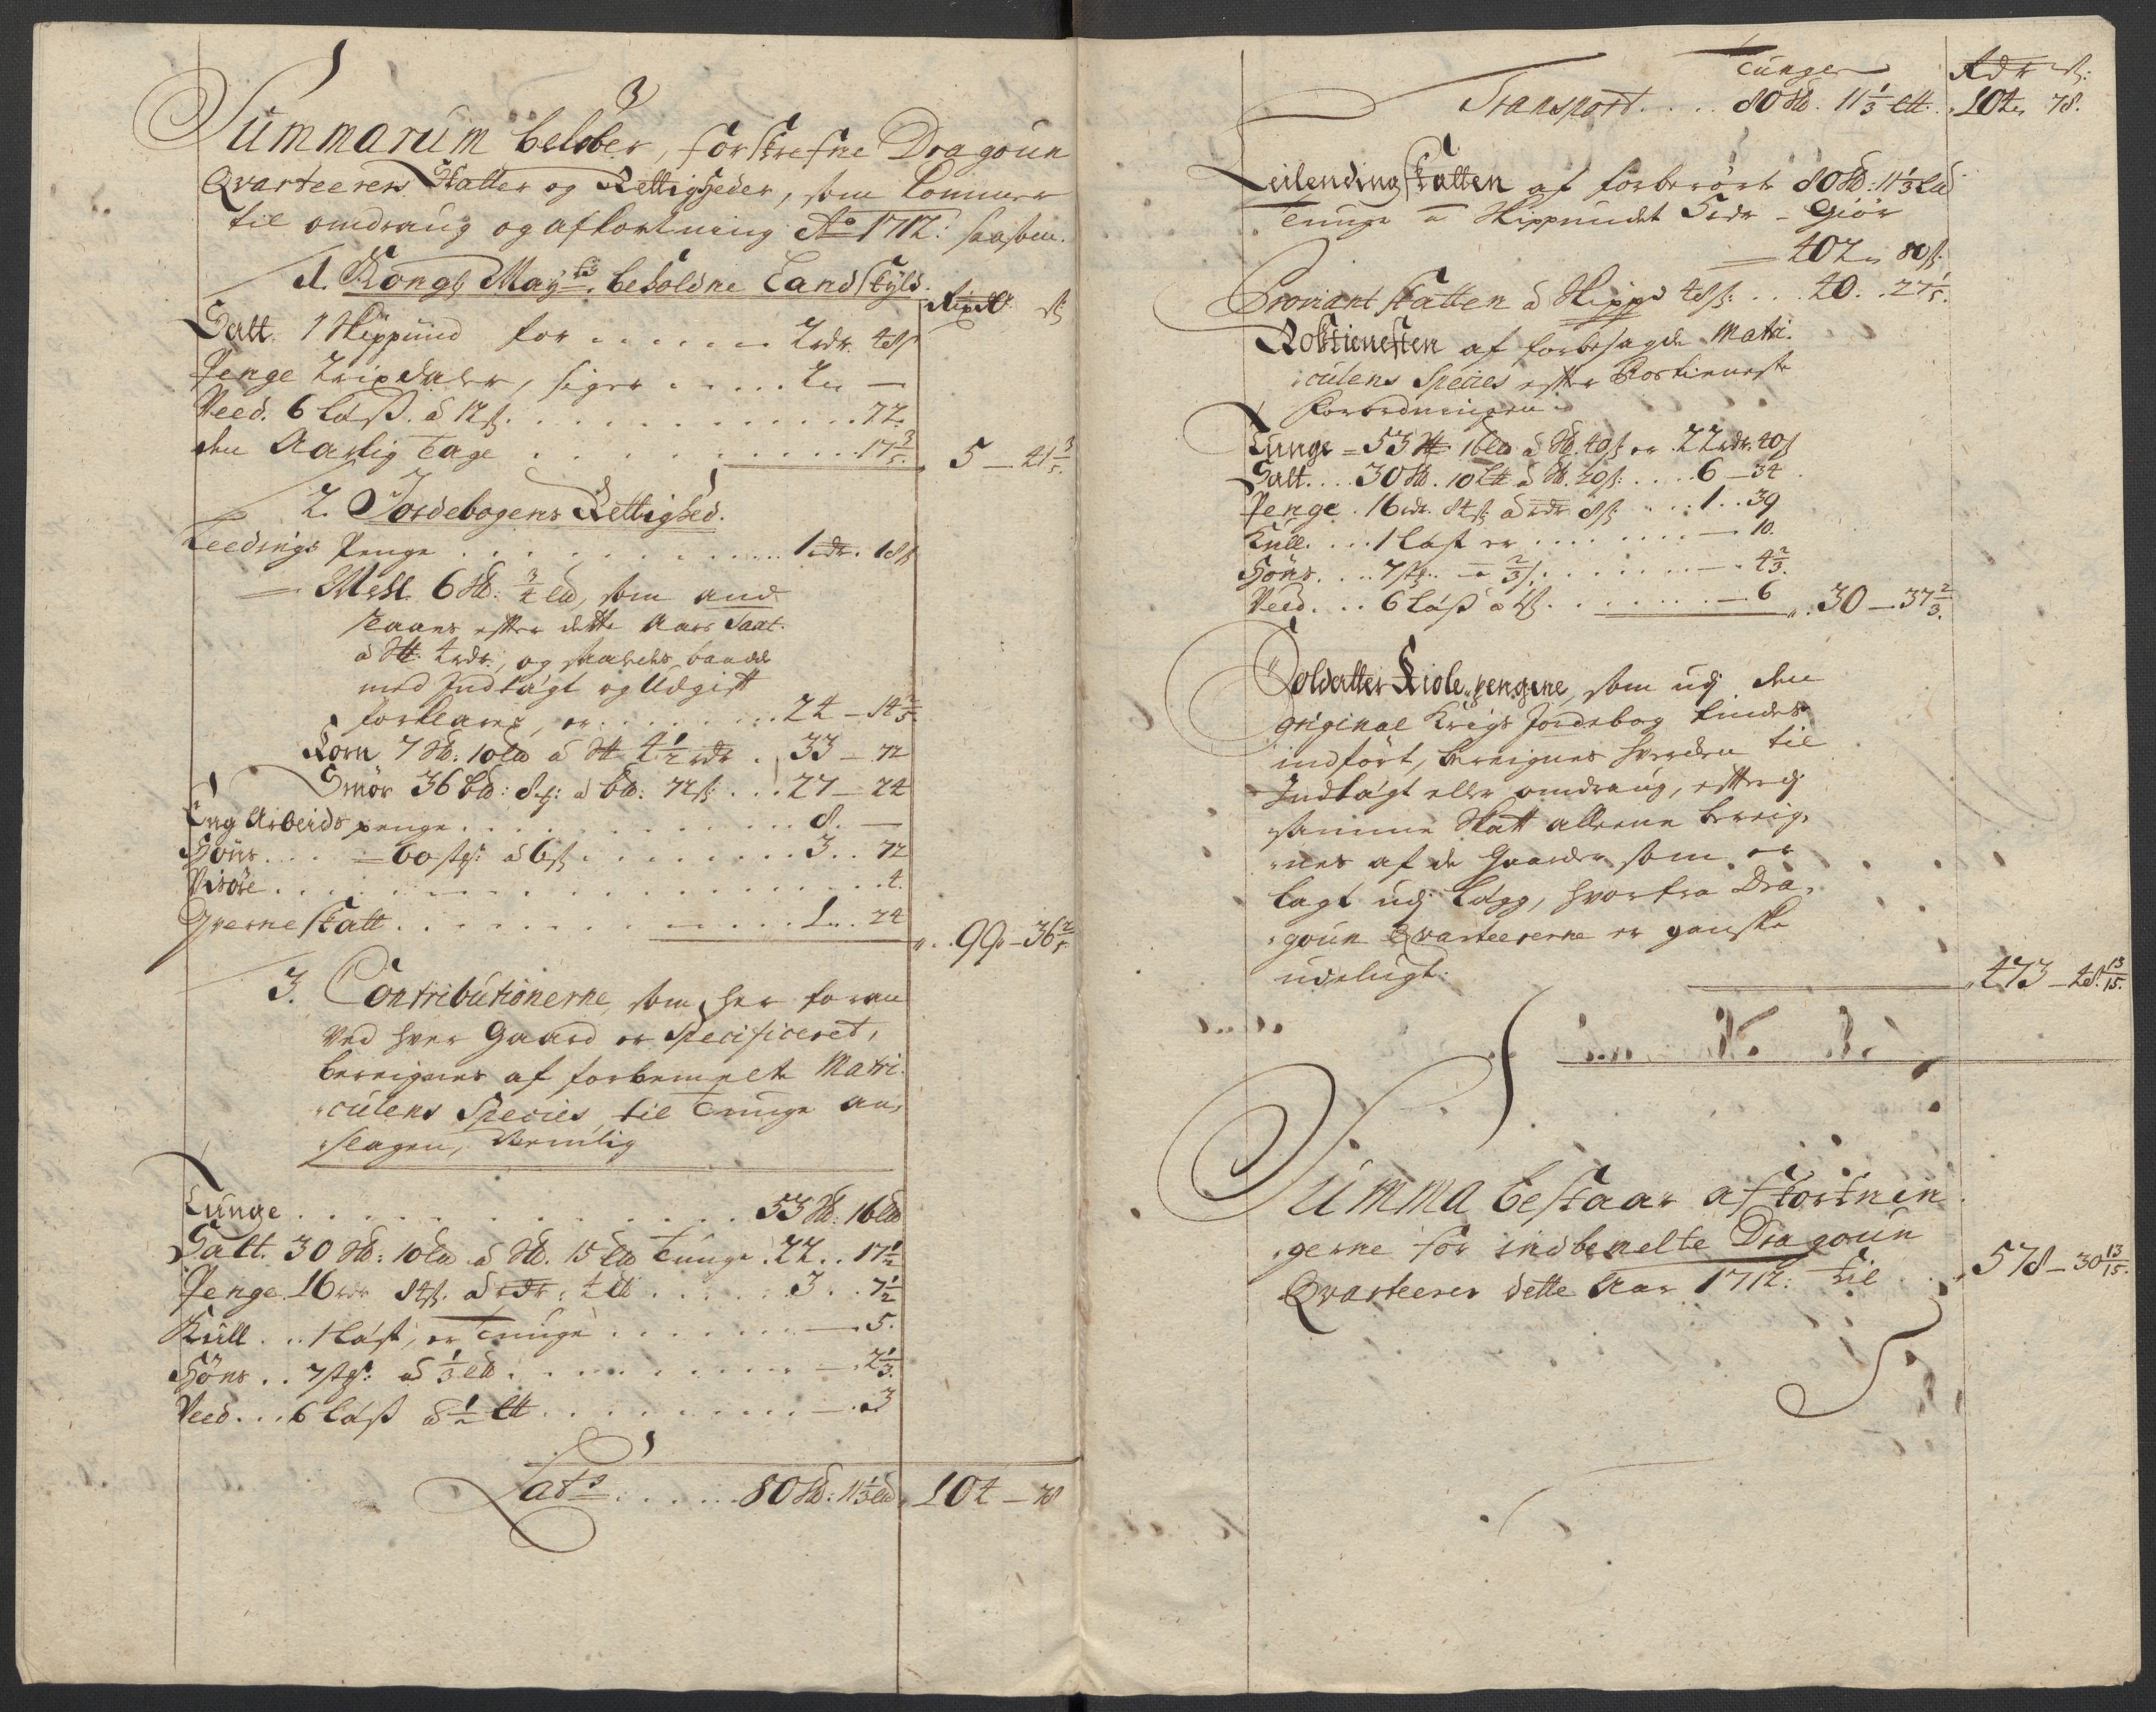 Summarum belober, forskrefne Dragoun
Qvarteerers Skatter og Rettigheder, som kommer
til omdraug og afkortning Ao 1712: saasom.
1. Kongl: May:ts beholdne Landskyld.
Ripdlr ß
Salt. 1 Skippund for . . . . . . 2 rdr. 48 ß
Penge 2 ripdaler, siger . . . . . 2 „ —
Veed. 6 Låss. à 12 ß . . . . . . . . . . . 72.
den Aarlig Tage . . . . . . . . . . . 17 3/5. 5 — 41 3/5
2. Jordebogens Rettighed.
Leedings Penge . . . . . . . . . . . . 1 rdr. 18 ß
— Meel 6 Sk: 3/4 L℔, som and-
staaer efter dette Aars Taxt.
à S℔ 4 rdr, og saaledes baade
med Indtægt og Udgift
forklares, er . . . . . . . 24 — 14 2/5.
Korn 7 Sk: 10 L℔ à S℔ 4 1/2 rdr . 33 — 72
Smör 36 L℔: 8 ß: à L℔: 72 ß: . . . 27 — 24
Eng Arbeids penge . . . . . . . . . . . . 8. —
Höns . . . — 60 stk: à 6 ß . . . . . . . . 3 . . 72
Visöre . . . . . . . . . . . . . . . . . . 4.
Qverneskatt . . . . . . . . . . . . . 1 . . 24
„ . 99 — 36 2/5
3. Contributionerne, som her foran
ved hver Gaard er Specificeret,
bereignes af forbemelte Matri-
culens Species, til Tunge an-
slagen, Nemlig
Tunge . . . . . . . . . . . . . . 53 S℔: 16 L℔
Salt. 30 S℔: 10 L℔ à S℔. 15 L℔ Tunge . 22 . . 17 1/2
Penge. 16 rdr 84 ß. à rdr: 4 L℔ . . . . . . 3 . . 7 1/2
Kull . . 1 Läst, er Tunge . . . . . . . — 5.
Höns . . 7 stk: à 1/3 L℔ . . . . . . . . . — . 2 1/3.
Veed . . . 6 Låss à 1/2 L℔ . . . . . . . . . — . 3
Lats . . . . . . 80 S℔: 11 1/3 L℔ „ 104 — 78
Tunge Rdr ß:
Transport . . . . 80 S℔. 11 1/3 L℔. 104 „ 78.
Leilendingskatten af forberört 80 S℔: 11 1/3 L℔
Tunge à Skippundet 5 rdr — Giör
— 402 „ 80 ß.
Proviantskatten à Skippd 48 ß: . . . 40 . . 27 1/5.
Rostienesten af forbesagde Matri-
culens Species efter Rostieneste
Forordningen
Tunge = 53 S℔ 16 L℔ à S℔. 40 ß er . 22 rdr. 40 ß
Salt . . . . 30 S℔. 10 L℔ à S℔. 20 ß: . . . . 6 — 34
Penge . 16 rdr. 84 ß à rdr 8 ß . . . . 1 . . 39
Kull. . . . 1 Läst er . . . . . . . . — 10.
Höns . . . . 7 stk: — à 2/3 ß . . . . . . . — . 4 2/3.
Veed . . . 6 Låss à 1 ß . . . . . . . . — 6 „ . 30 — 37 2/3.
Soldatter Kiole pengene, som udj den
original Krigs Jordebog findes
indfört, bereignes hverken til
Indtægt eller omdraug, efterdj
samme Skatt alleene bereig-
nes af de Gaarder som er
lagt udj Lægg, hvorfra Dra-
goun Qvarteererne er ganske
udelugt:
473 — 48 13/15.
Summa bestaar afkortnin-
gerne for indbemelte Dragoun
Qvarteerer dette Aar 1712: til . . „ 578 — 30 13/15.